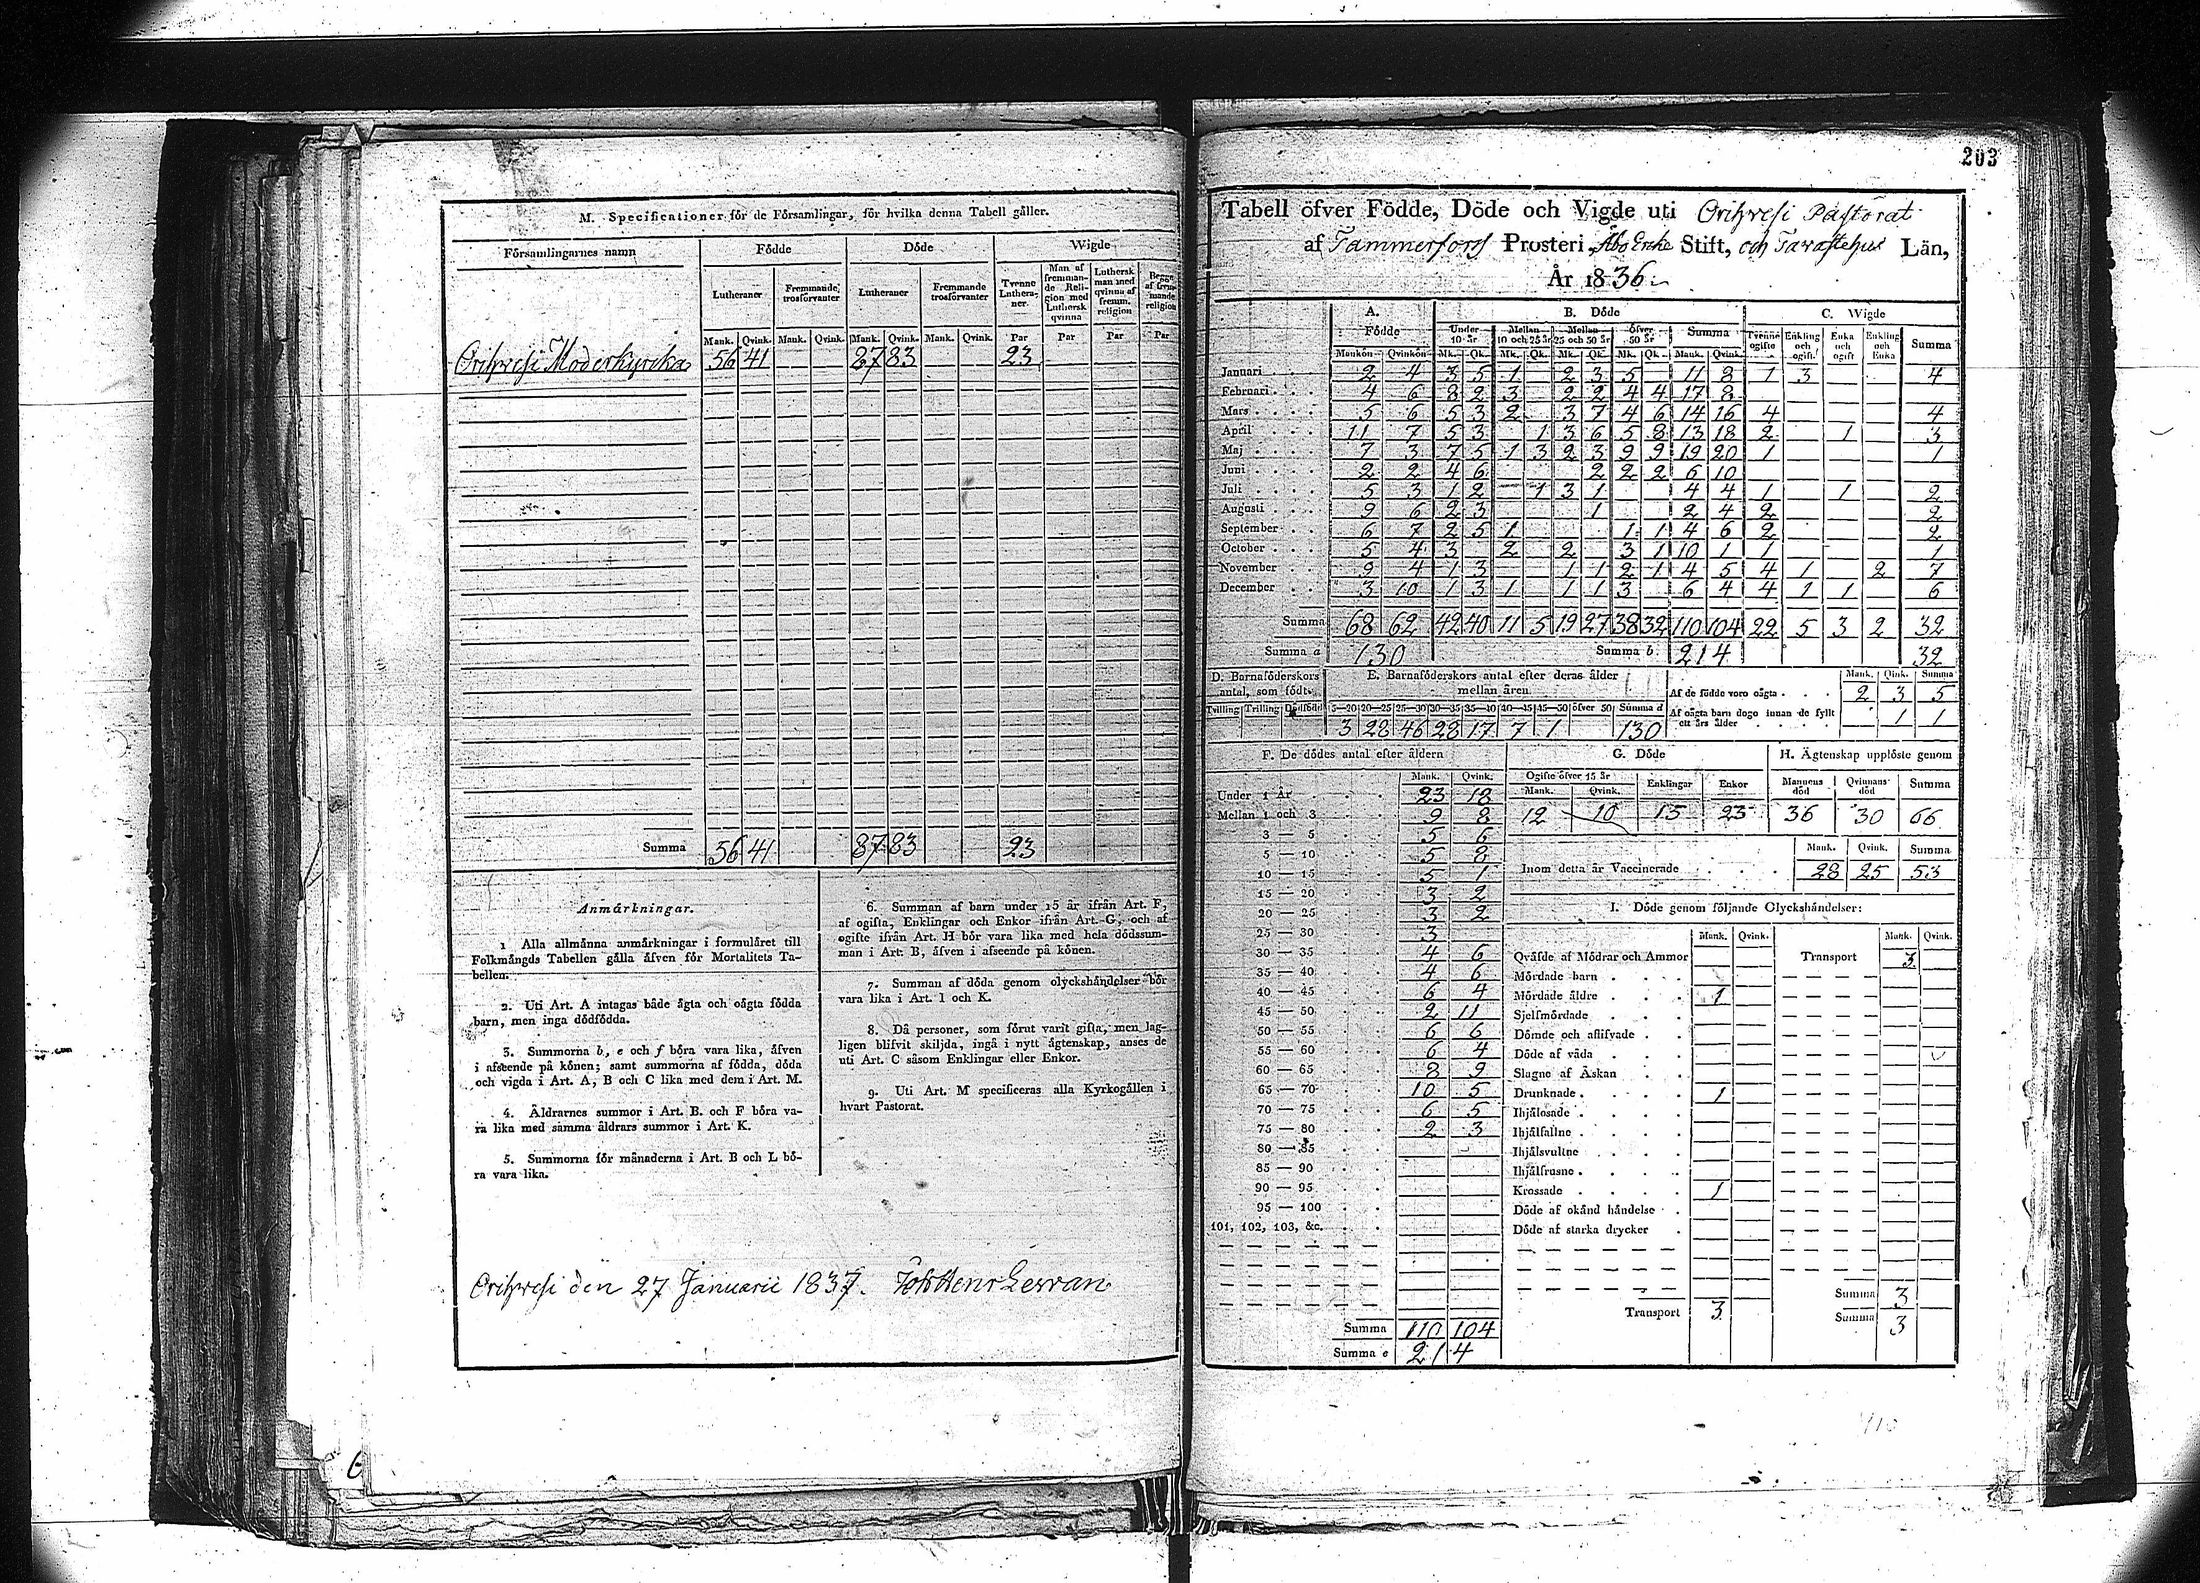 M. Specificationer för de Församlingar, för hvilka denna Tabell gäller.
Församlingarnes namn | Födde | Döde | Wigde
Lutheraner | Fremmande trosförvanter | Lutheraner | Fremmande trosförvanter | Tvenne Lutheraner. | Man af fremmande Religion med Luthersk qvinna | Luthersk man med qvinna af fremm. religion | Begge af fremmande religion
Mank. | Qvink. | Mank. | Qvink. | Mank. | Qvink. | Mank. | Qvink. | Par | Par | Par | Par
Orihvesi Moderkyrcka 56 41 87 83 23
Summa 56 41 87 83 23
Anmärkningar.
1 Alla allmänna anmärkningar i formuläret till
Folkmängds Tabellen gälla äfven för Mortalitets Ta-
bellen.
2. Uti Art. A intagas både ägta och oägta födda
barn, men inga dödfödda.
3. Summorna b, e och f böra vara lika, äfven
i afseende på könen; samt summorna af födda, döda
och vigda i Art. A, B och C lika med dem i Art. M.
4. Åldrarnes summor i Art. B. och F böra va-
ra lika med samma åldrars summor i Art. K.
5. Summorna för månaderna i Art. B och L bö-
ra vara lika.
6. Summan af barn under 15 år ifrån Art. F,
af ogifta, Enklingar och Enkor ifrån Art. G, och af
ogifte ifrån Art. H bör vara lika med hela dödssum-
man i Art. B, äfven i afseende på könen.
7. Summan af döda genom olyckshändelser bör
vara lika i Art. I och K.
8. Då personer, som förut varit gifta, men lag-
ligen blifvit skiljda, ingå i nytt ägtenskap, anses de
uti Art. C såsom Enklingar eller Enkor.
9. Uti Art. M specificeras alla Kyrkogällen i
hvart Pastorat.
Orihvesi den 27 Januarii 1837.
203
Tabell öfver Födde, Döde och Vigde uti Orihvesi Pastorat
af Tammerfors Prosteri, Åbo Erke Stift, och Tavastehus Län,
År 1836.
A. Födde | B. Döde | C. Wigde
Under 10 år | Mellan 10 och 25 år | Mellan 25 och 50 år | Öfver 50 år | Summa | Tvenne ogifte | Enkling och ogift | Enka och ogift | Enkling och Enka | Summa
Mankön | Qvinkön | Mk. | Qk. | Mk. | Qk. | Mk. | Qk. | Mk. | Qk. | Mank. | Qvink.
Januari 2 4 3 5 1 2 3 5 11 8 1 3 4
Februari 4 6 8 2 3 2 2 4 4 17 8
Mars 5 6 5 3 2 3 7 4 6 14 16 4 4
April 11 7 5 3 1 3 6 5 8 13 18 2 1 3
Maj 7 3 7 5 1 3 2 3 9 9 19 20 1 1
Juni 2 2 4 6 2 2 2 6 10
Juli 5 3 1 2 1 3 1 4 4 1 1 2
Augusti 9 6 2 3 1 2 4 2 2
September 6 7 2 5 1 1 1 4 6 2 2
October 5 4 3 2 2 3 1 10 1 1 1
November 9 4 1 3 1 1 2 1 4 5 4 1 2 7
December 3 10 1 3 1 1 1 3 6 4 4 1 1 6
Summa 68 62 42 40 11 5 19 27 38 32 110 104 22 5 3 2 32
Summa a 130 Summa b. 214 32
D. Barnaföderskors antal, som födt. | E. Barnaföderskors antal efter deras ålder mellan åren
Tvilling | Trilling | Dödfödt | 15—20 | 20—25 | 25—30 | 30—35 | 35—40 | 40—45 | 45—50 | öfver 50 | Summa d
3 28 46 28 17 7 1 130
Mank. | Qink. | Summa
Af de födde voro oägta 2 3 5
Af oägta barn dogo innan de fyllt
ett års ålder 1 1
F. De dödes antal efter åldern
Mank. | Qvink.
Under 1 År 23 18
Mellan 1 och 3 9 8
3 — 5 5 6
5 — 10 5 8
10 — 15 5 1
15 — 20 3 2
20 — 25 3 2
25 — 30 3
30 — 35 4 6
35 — 40 4 6
40 — 45 6 4
45 — 50 2 11
50 — 55 6 6
55 — 60 6 4
60 — 65 8 9
65 — 70 10 5
70 — 75 6 5
75 — 80 2 3
80 — 85
85 — 90
90 — 95
95 — 100
101, 102, 103, &c.
Summa 110 104
Summa e 214
G. Döde
Ogifte öfver 15 år | Enklingar | Enkor
Mank. | Qvink.
12 10 15 23
H. Ägtenskap upplöste genom
Mannens död | Qvinnans död | Summa
36 30 66
Mank. | Qvink. | Summa
Inom detta år Vaccinerade 28 25 53
I. Döde genom följande Olyckshändelser:
Mank. | Qvink. | Mank. | Qvink.
Qväfde af Mödrar och Ammor
Mördade barn
Mördade äldre 1
Sjelfmördade
Dömde och aflifvade
Döde af våda
Slagne af Åskan
Drunknade 1
Ihjälosade
Ihjälfallne
Ihjälsvultne
Ihjälfrusne
Krossade 1
Döde af okänd händelse
Döde af starka drycker
Transport 3
Transport 3
Summa 3
Summa 3